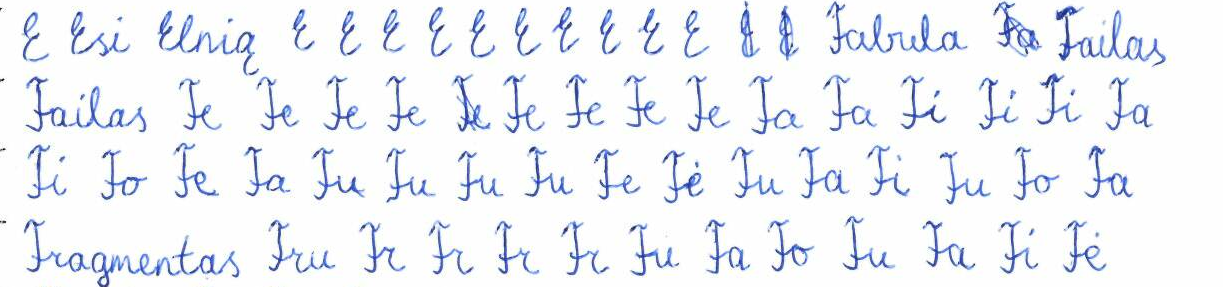 E Esi Elnią E E E E E E E E E E Fabula Failas
Failas Fe Fe Fe Fe Fe Fe Fe Fe Fa Fa Fi Fi Fi Fa
Fi Fo Fe Fa Fu Fu Fu Fu Fe Fė Fu Fa Fi Fu Fo Fa
Fragmentas Fru Fr Fr Fr Fr Fu Fa Fo Fu Fa Fi Fė